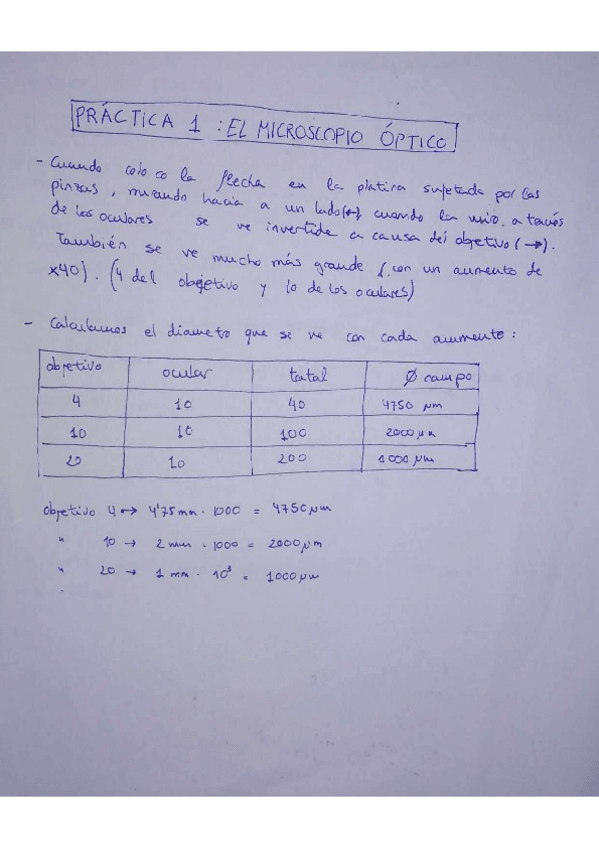 PRÁCTICA 1 : EL MICROSCOPIO ÓPTICO
- Cuando coloco la flecha en la platina sujetada por las
pinzas, mirando hacia a un lado(←) cuando la miro a través
de los oculares se ve invertida a causa del objetivo (→).
También se ve mucho más grande (con un aumento de
x40). (4 del objetivo y 10 de los oculares)
- Calculamos el diametro que se ve con cada aumento:
objetivo ocular total Ø campo
4 10 40 4750 µm
10 10 100 2000 µm
20 10 200 1000 µm
objetivo 4 ↔ 4'75 mm · 1000 = 4750 µm
" 10 → 2 mm · 1000 = 2000 µm
" 20 → 1 mm · 10³ = 1000 µm